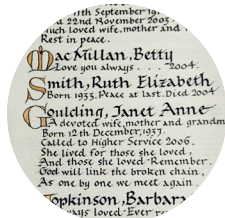 th September 19
22nd November 2003.
ch loved wife, mother and
Rest in peace.
MacMillan, Betty
Love you always . . . 2004.
Smith, Ruth Elizabeth
Born 1933, Peace at last. Died 2004
Goulding, Janet Anne
A devoted wife, mother and grandm
Born 12th December, 1937.
Called to Higher Service 2006.
She lived for those she loved,
And those she loved Remember.
God will link the broken chain,
As one by one we meet again.
Hopkinson, Barbara
ways loved Ever re